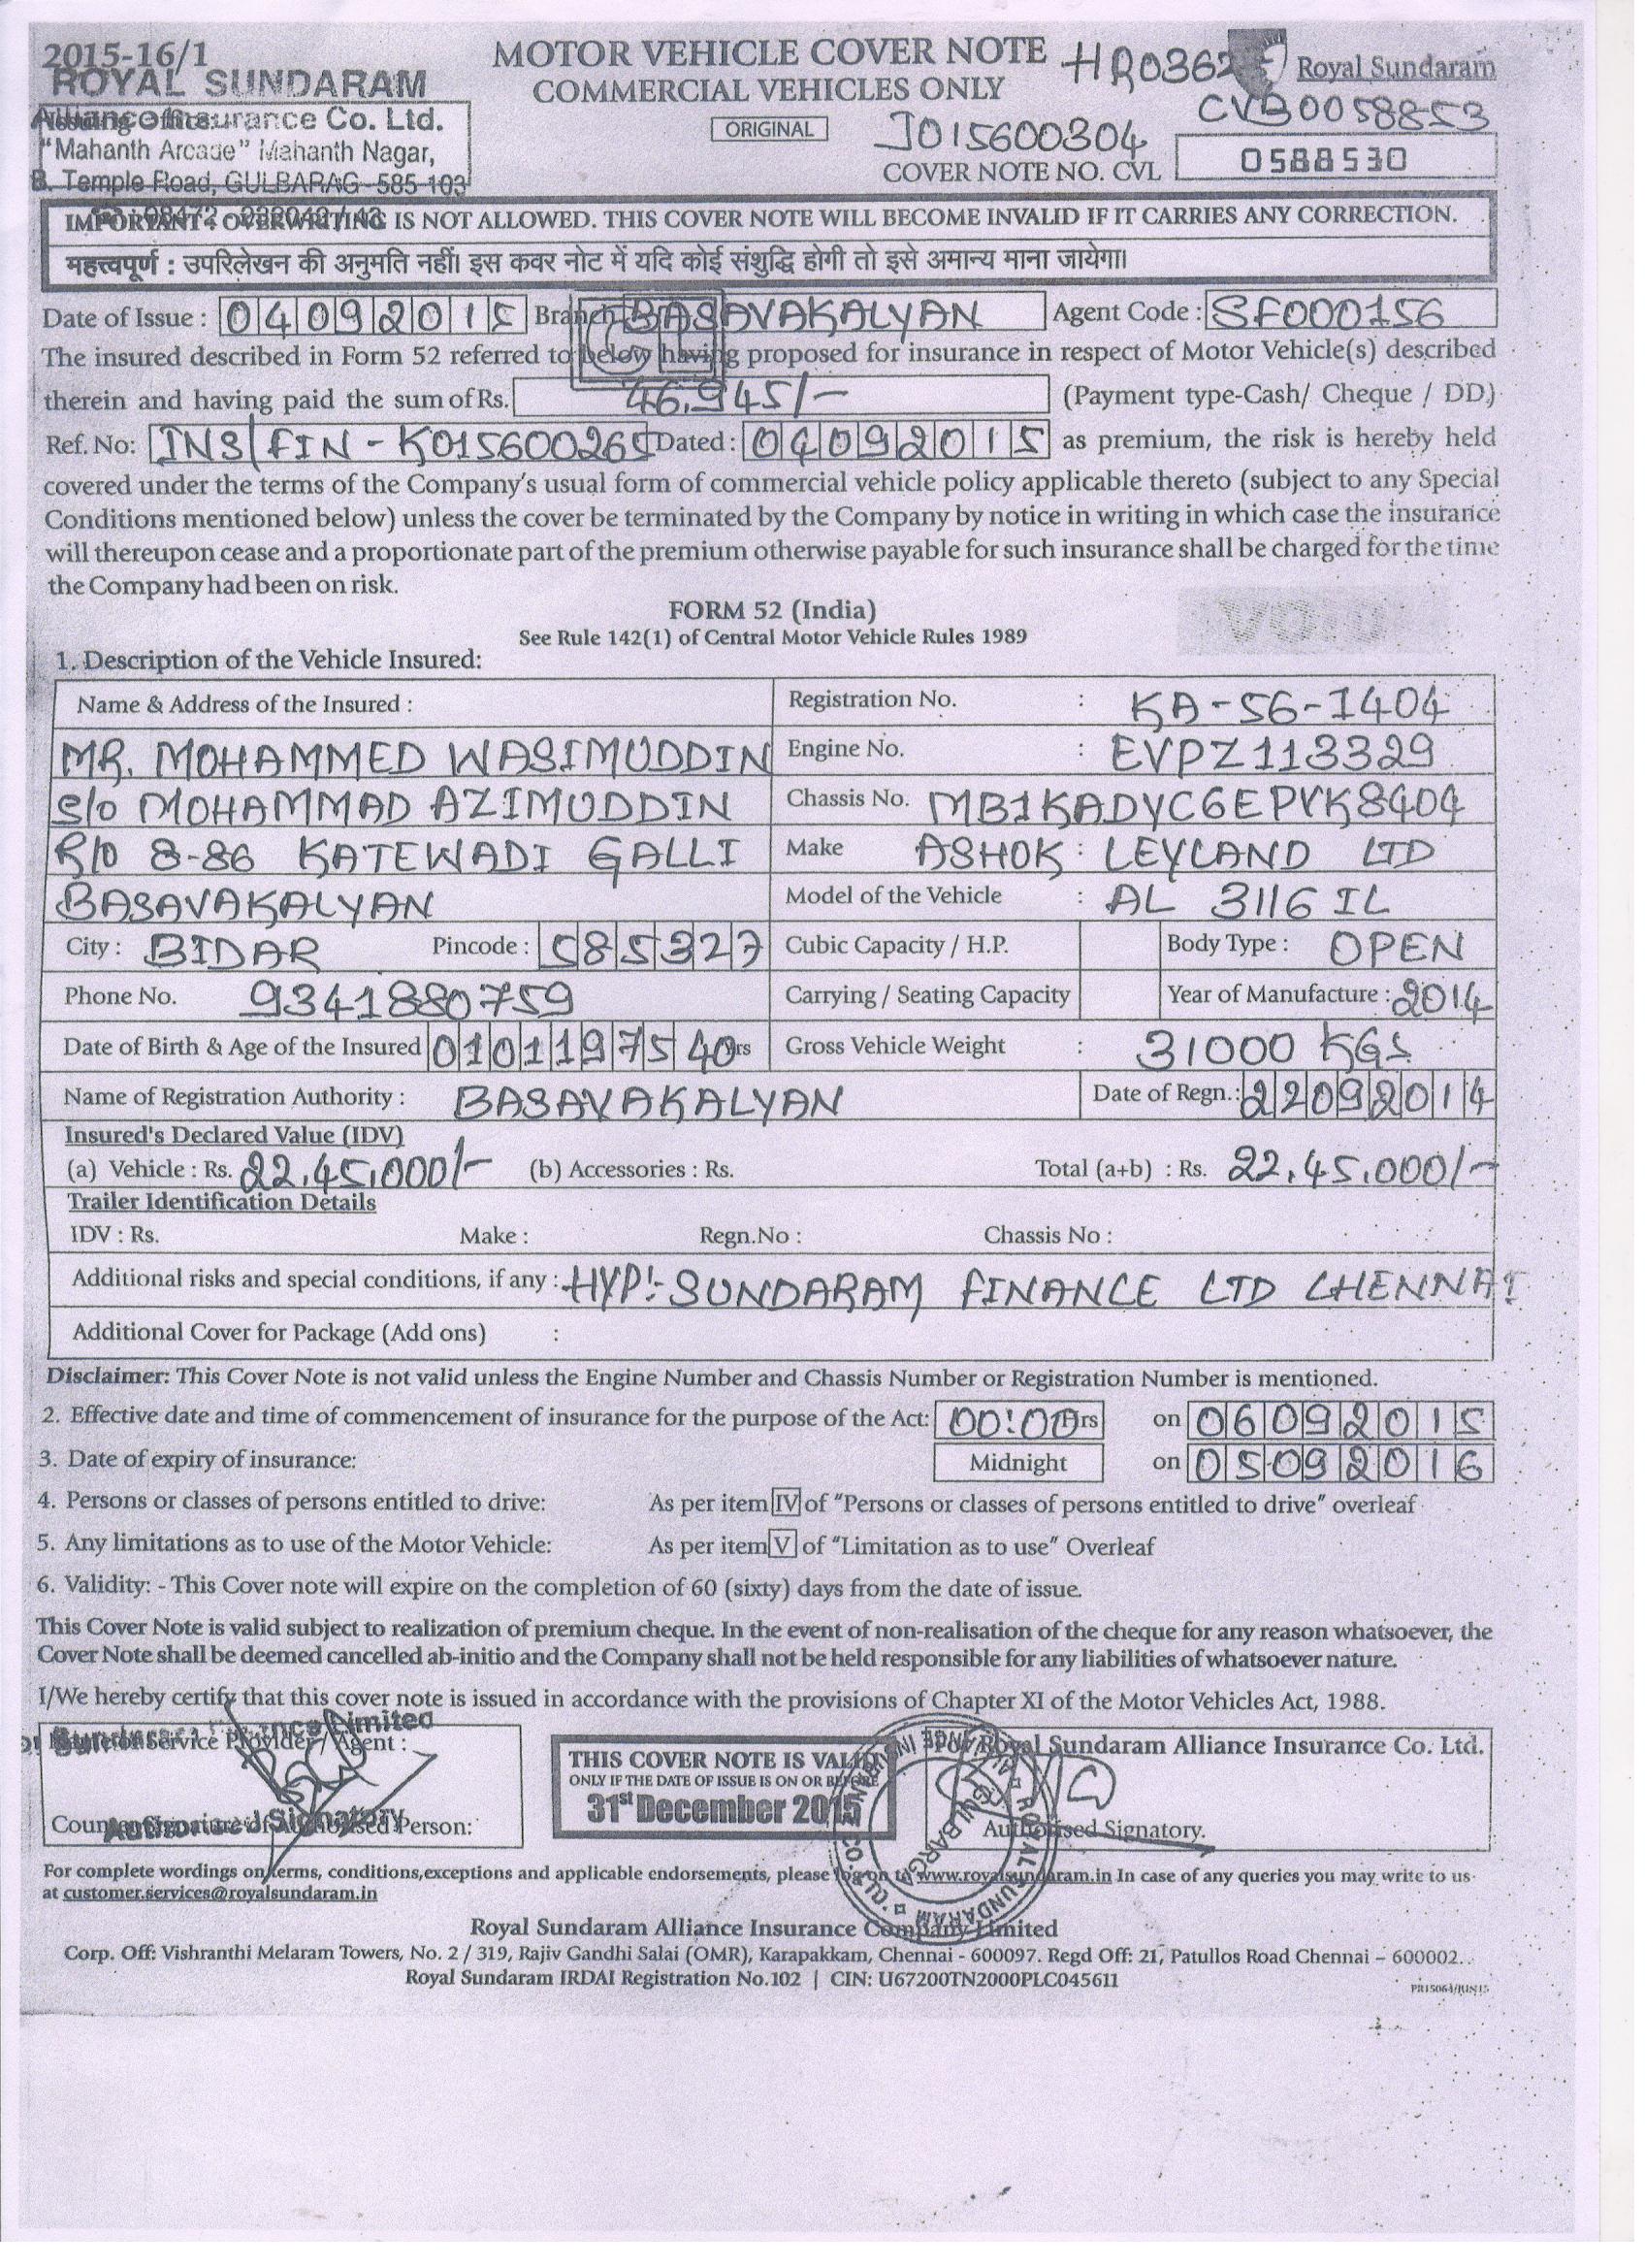 2015-16/1
ROYAL SUNDARAM
Alliance Insurance Co. Ltd.
"Mahanth Arcade" Mahanth Nagar,
B. Temple Road, GULBARAG-585 103
MOTOR VEHICLE COVER NOTE
COMMERCIAL VEHICLES ONLY
ORIGINAL
HR0362
Royal Sundaram
CVB0058853
J015600304
COVER NOTE NO. CVL 0588530
IMPORTANT : OVERWRITING IS NOT ALLOWED. THIS COVER NOTE WILL BECOME INVALID IF IT CARRIES ANY CORRECTION.
महत्त्वपूर्ण : उपरिलेखन की अनुमति नहीं। इस कवर नोट में यदि कोई संशुद्धि होगी तो इसे अमान्य माना जायेगा।
Date of Issue : 04092015 Branch BASAVAKALYAN Agent Code : SF000156
The insured described in Form 52 referred to below having proposed for insurance in respect of Motor Vehicle(s) described
therein and having paid the sum of Rs. 46,945/- (Payment type-Cash/ Cheque / DD)
Ref. No: INS/FIN-K015600265 Dated : 04092015 as premium, the risk is hereby held
covered under the terms of the Company's usual form of commercial vehicle policy applicable thereto (subject to any Special
Conditions mentioned below) unless the cover be terminated by the Company by notice in writing in which case the insurance
will thereupon cease and a proportionate part of the premium otherwise payable for such insurance shall be charged for the time
the Company had been on risk.
FORM 52 (India)
See Rule 142(1) of Central Motor Vehicle Rules 1989
VOID
1. Description of the Vehicle Insured:
Name & Address of the Insured :
Registration No. : KA-56-1404
MR. MOHAMMED WASIMUDDIN
Engine No. : EVPZ113329
S/o MOHAMMAD AZIMUDDIN
Chassis No. MB1KADYC6EPVK8404
R/O 8-86 KATEWADI GALLI
Make ASHOK : LEYLAND LTD
BASAVAKALYAN
Model of the Vehicle : AL 3116 IL
City : BIDAR Pincode : 585327
Cubic Capacity / H.P. Body Type : OPEN
Phone No. 9341880759
Carrying / Seating Capacity Year of Manufacture : 2014
Date of Birth & Age of the Insured 01011975 40rs
Gross Vehicle Weight : 31000 KGS
Name of Registration Authority : BASAVAKALYAN Date of Regn.: 22092014
Insured's Declared Value (IDV)
(a) Vehicle : Rs. 22,45,000/- (b) Accessories : Rs. Total (a+b) : Rs. 22,45,000/-
Trailer Identification Details
IDV : Rs. Make : Regn.No : Chassis No :
Additional risks and special conditions, if any : HYP:- SUNDARAM FINANCE LTD CHENNAI
Additional Cover for Package (Add ons) :
Disclaimer: This Cover Note is not valid unless the Engine Number and Chassis Number or Registration Number is mentioned.
2. Effective date and time of commencement of insurance for the purpose of the Act: 00:00Hrs on 06092015
3. Date of expiry of insurance: Midnight on 05092016
4. Persons or classes of persons entitled to drive: As per item IV of "Persons or classes of persons entitled to drive" overleaf
5. Any limitations as to use of the Motor Vehicle: As per item V of "Limitation as to use" Overleaf
6. Validity: - This Cover note will expire on the completion of 60 (sixty) days from the date of issue.
This Cover Note is valid subject to realization of premium cheque. In the event of non-realisation of the cheque for any reason whatsoever, the
Cover Note shall be deemed cancelled ab-initio and the Company shall not be held responsible for any liabilities of whatsoever nature.
I/We hereby certify that this cover note is issued in accordance with the provisions of Chapter XI of the Motor Vehicles Act, 1988.
Limited
Service Provider / Agent :
Authorised Signatory
Person:
THIS COVER NOTE IS VALID
ONLY IF THE DATE OF ISSUE IS ON OR BEFORE
31st December 2015
For Royal Sundaram Alliance Insurance Co. Ltd.
Authorised Signatory.
ROYAL SUNDARAM ALLIANCE INSURANCE CO. LTD.
GULBARGA
For complete wordings on terms, conditions,exceptions and applicable endorsements, please log on to www.royalsundaram.in In case of any queries you may write to us
at customer.services@royalsundaram.in
Royal Sundaram Alliance Insurance Company Limited
Corp. Off: Vishranthi Melaram Towers, No. 2 / 319, Rajiv Gandhi Salai (OMR), Karapakkam, Chennai - 600097. Regd Off: 21, Patullos Road Chennai – 600002.
Royal Sundaram IRDAI Registration No.102 | CIN: U67200TN2000PLC045611
PR15064/JUN15